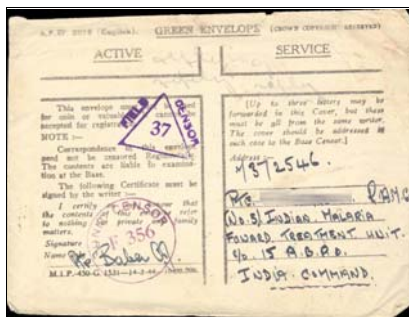 GREEN ENVELOPE (CROWN COPYRIGHT RESERVED)
ACTIVE
SERVICE
This envelope must be used
for coin or valuables
accepted for
NOTE :—
Correspondence in this envelope
need not be censored Regimentally.
The contents are liable to examina-
tion at the Base.
The following Certificate must be
signed by the writer :—
I certify that
the contents of refer
to nothing private family
matters.
Signature
Name Pte Baber
FIELD
CENSOR
37
CENSOR
356
[Up to three letters may be
forwarded in this Cover, but these
must be all from the same writer.
The cover should be addressed in
such case to the Base Censor.]
Address :—
Pte. R.A.M.C.
(No. 8) INDIAN MALARIA
FOWARD TREATMENT UNIT.
c/o. 15 A.B.P.O.
INDIA COMMAND.